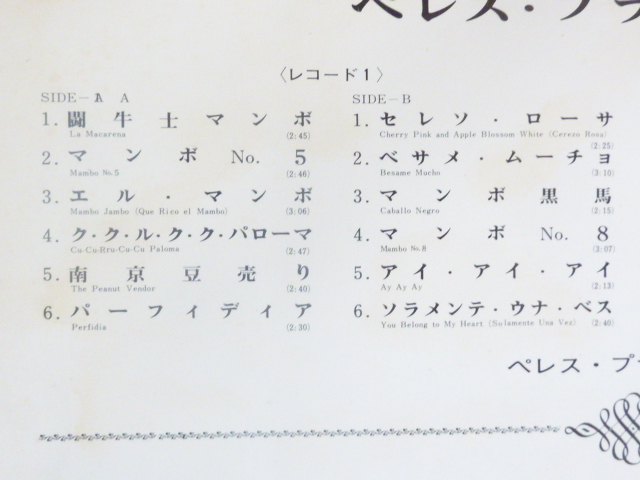 ペレス・プラ
〈レコード1〉
SIDE-A A
1. 闘牛士マンボ
La Macarena (2:45)
2. マンボ No. 5
Mambo No.5 (2:46)
3. エル・マンボ
Mambo Jambo (Que Rico el Mambo) (3:06)
4. ク・ク・ル・ク・ク・パローマ
Cu-Cu-Rru-Cu-Cu Paloma (2:47)
5. 南京豆売り
The Peanut Vendor (2:40)
6. パーフィディア
Perfidia (2:30)
SIDE-B
1. セレソ・ローサ
Cherry Pink and Apple Blossom White (Cerezo Rosa)
(2:25)
2. ベサメ・ムーチョ
Besame Mucho (3:10)
3. マンボ黒馬
Caballo Negro (2:15)
4. マンボ No. 8
Mambo No.8 (3:07)
5. アイ・アイ・アイ
Ay Ay Ay (2:13)
6. ソラメンテ・ウナ・ベス
You Belong to My Heart (Solamente Una Vez) (2:40)
ペレス・プ